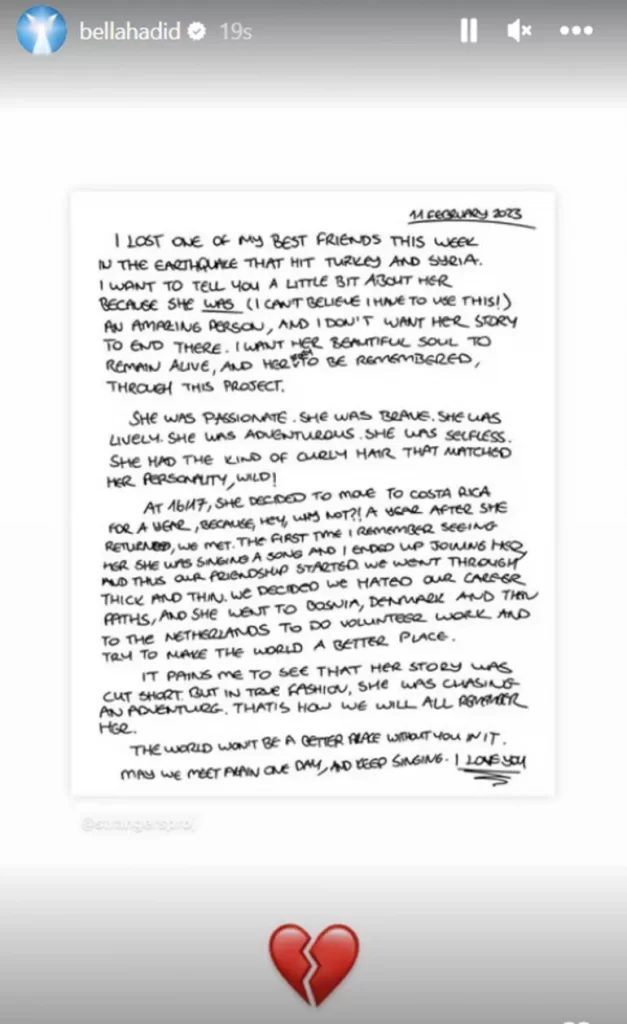 bellahadid 19s
11 FEBRUARY 2023
I LOST ONE OF MY BEST FRIENDS THIS WEEK
IN THE EARTHQUAKE THAT HIT TURKEY AND SYRIA.
I WANT TO TELL YOU A LITTLE BIT ABOUT HER
BECAUSE SHE WAS (I CAN'T BELIEVE I HAVE TO USE THIS!)
AN AMAZING PERSON, AND I DON'T WANT HER STORY
TO END THERE. I WANT HER BEAUTIFUL SOUL TO
REMAIN ALIVE, AND HER TO BE REMEMBERED,
THROUGH THIS PROJECT.
SHE WAS PASSIONATE. SHE WAS BRAVE. SHE WAS
LIVELY. SHE WAS ADVENTUROUS. SHE WAS SELFLESS.
SHE HAD THE KIND OF CURLY HAIR THAT MATCHED
HER PERSONALITY, WILD!
AT 16/17, SHE DECIDED TO MOVE TO COSTA RICA
FOR A YEAR, BECAUSE, HEY, WHY NOT?! A YEAR AFTER SHE
RETURNED, WE MET. THE FIRST TIME I REMEMBER SEEING
HER SHE WAS SINGING A SONG AND I ENDED UP JOINING HER,
AND THUS OUR FRIENDSHIP STARTED. WE WENT THROUGH
THICK AND THIN. WE DECIDED WE HATED OUR CAREER
PATHS, AND SHE WENT TO BOSNIA, DENMARK AND THEN
TO THE NETHERLANDS TO DO VOLUNTEER WORK AND
TRY TO MAKE THE WORLD A BETTER PLACE.
IT PAINS ME TO SEE THAT HER STORY WAS
CUT SHORT. BUT IN TRUE FASHION, SHE WAS CHASING
AN ADVENTURE. THAT IS HOW WE WILL ALL REMEMBER
HER.
THE WORLD WON'T BE A BETTER PLACE WITHOUT YOU IN IT.
MAY WE MEET AGAIN ONE DAY, AND KEEP SINGING. I LOVE YOU
@strangersproj